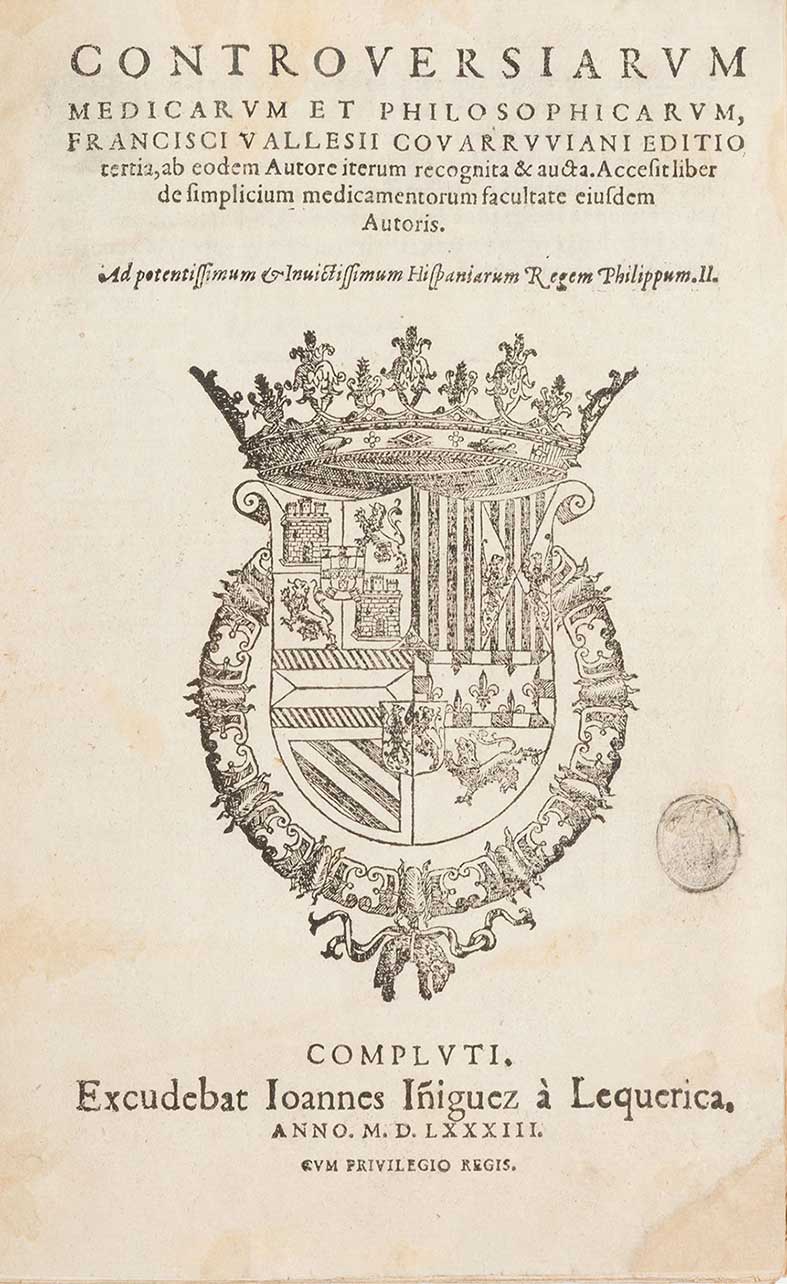 CONTROVERSIARVM
MEDICARVM ET PHILOSOPHICARVM,
FRANCISCI VALLESII COVARRVVIANI EDITIO
tertia, ab eodem Autore iterum recognita & aucta. Accesit liber
de ſimplicium medicamentorum facultate eiuſdem
Autoris.
Ad potentiſſimum & Inuictiſſimum Hiſpaniarum Regem Philippum.II.
COMPLVTI.
Excudebat Ioannes Iñiguez à Lequerica.
ANNO. M. D. LXXXIII.
CVM PRIVILEGIO REGIS.